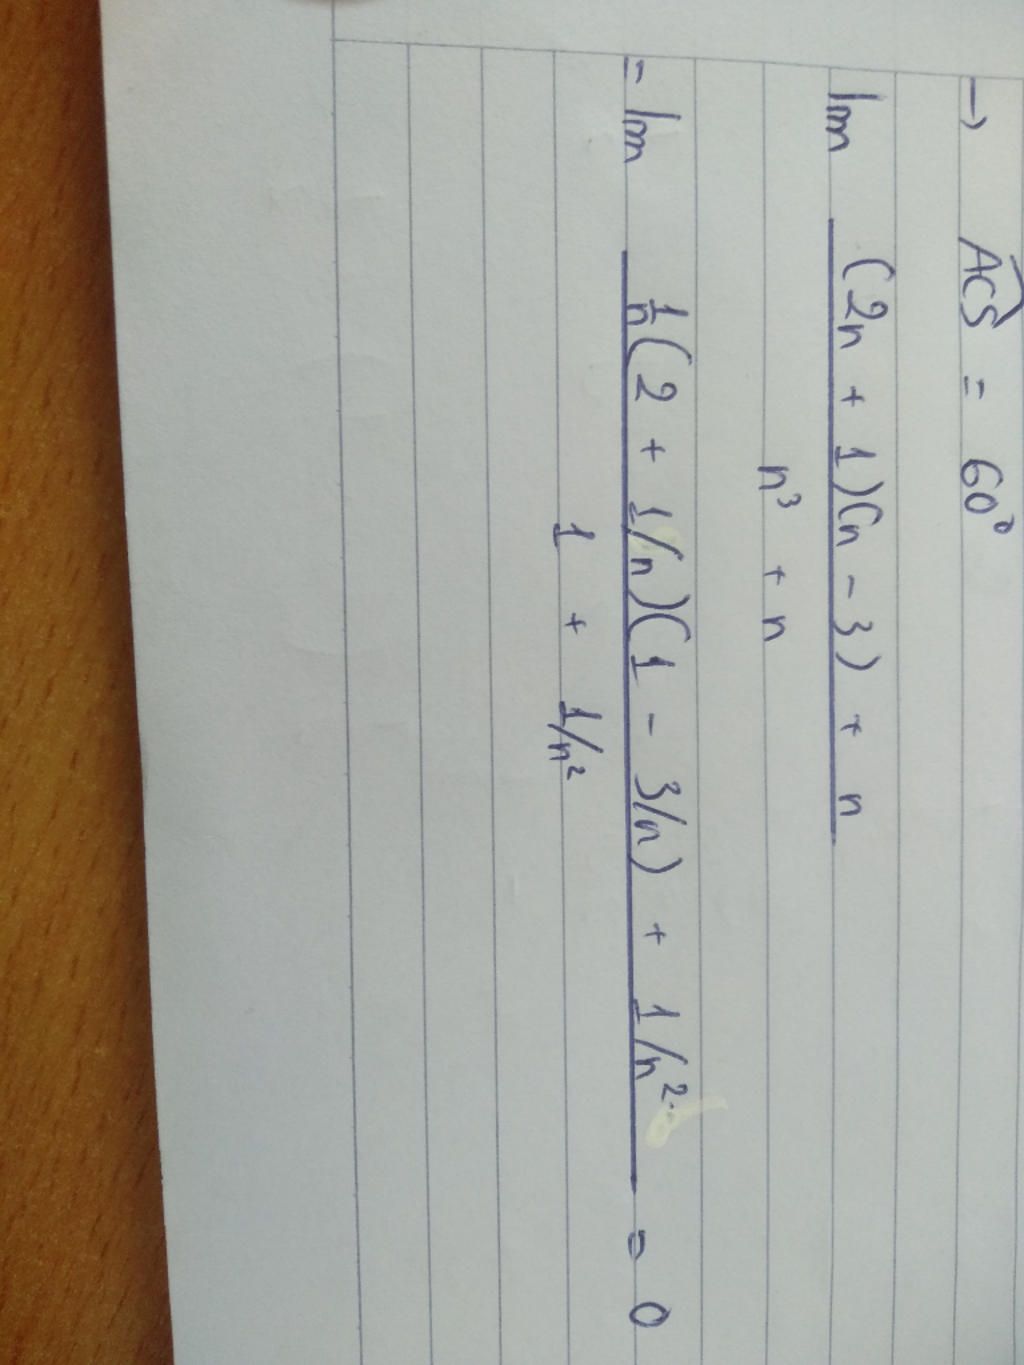 → ACS = 60°
lim (2n + 1)(n - 3) + n
n³ + n
= lim 1/n(2 + 1/n)(1 - 3/n) + 1/n² = 0
1 + 1/n²